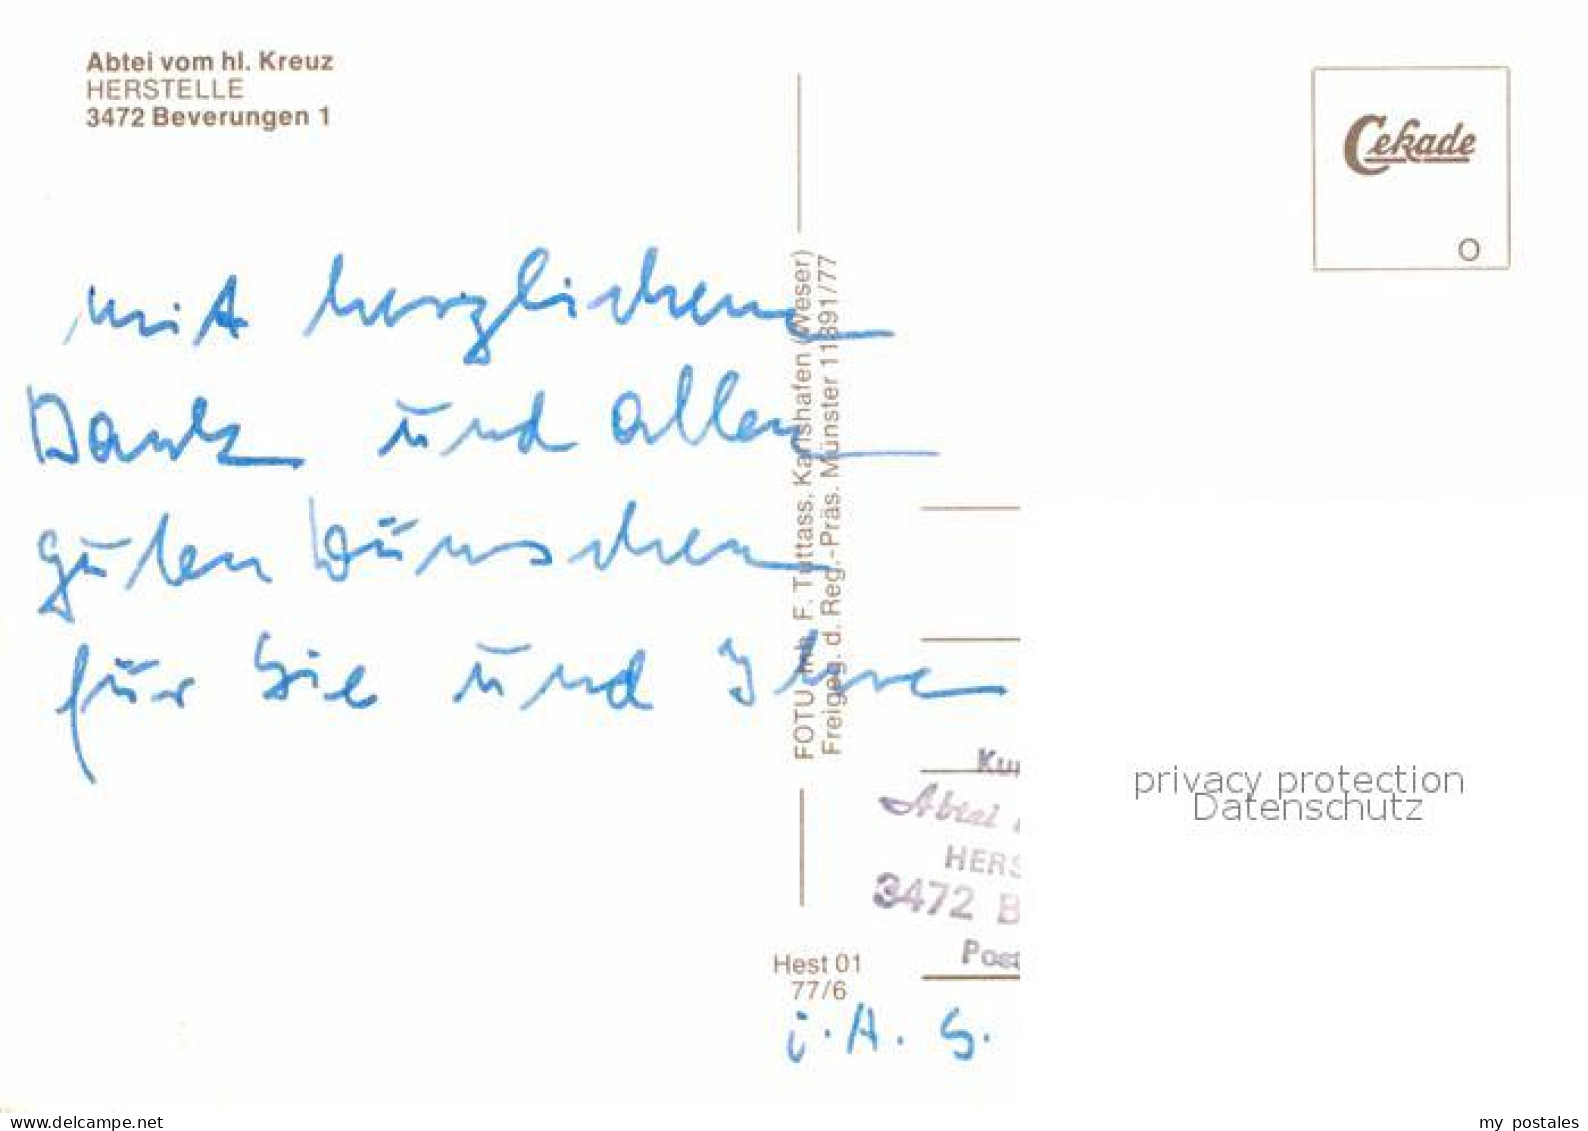 Abtei vom hl. Kreuz
HERSTELLE
3472 Beverungen 1
Cekade
mit herzlichem
Dank und allen
guten Wünschen
für Sie und Ihre
FOTU Inh. F. Tuttass, Karlshafen (Weser)
Freigeg. d. Reg.-Präs. Münster 11391/77
Abtei
HERS
3472 B
Post
Hest 01
77/6
i. A. S.
privacy protection
Datenschutz
www.delcampe.net
my postales